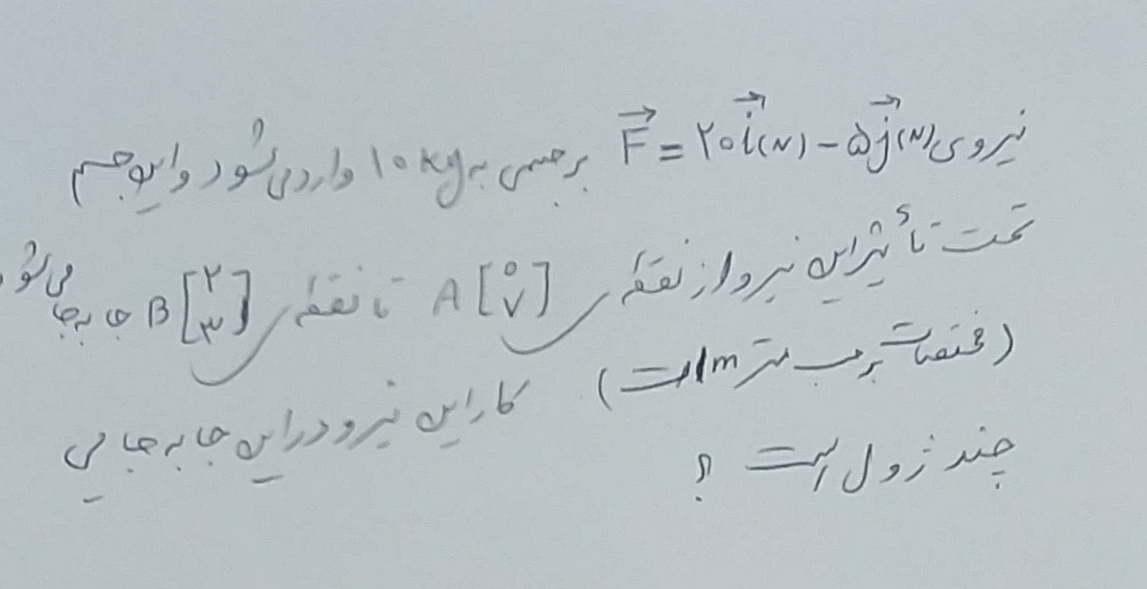 نیروی F = ۲۰i(N) − ۵j(N) بر جسمی به ۱۰ kg وارد می‌شود و این جسم
تحت تأثیر این نیرو از نقطه A [۰ ۷] تا نقطه B [۲ ۳] جا به جا می‌شود
(مختصات بر حسب متر m است) کار این نیرو در این جا به جایی
چند ژول است ؟